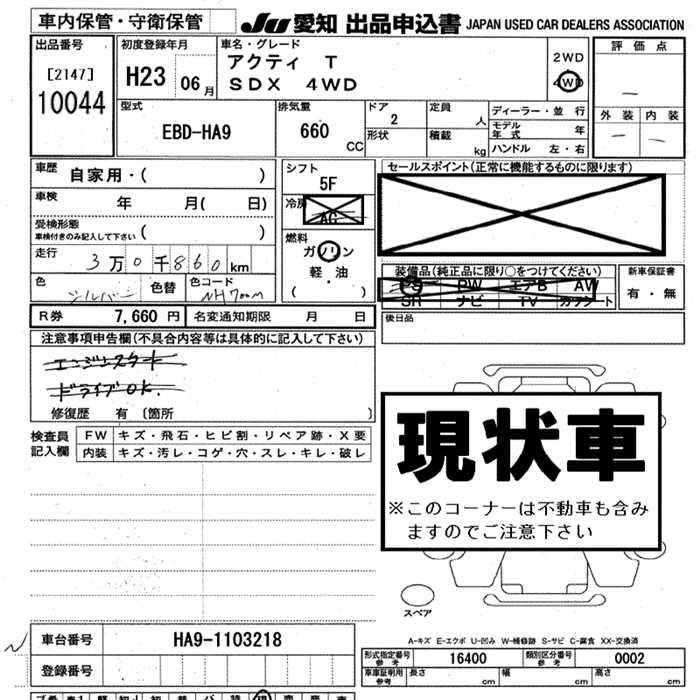 車内保管・守衛保管
JU 愛知 出品申込書 JAPAN USED CAR DEALERS ASSOCIATION
出品番号
[2147]
10044
初度登録年月
H23 06 月
車名・グレード
アクティ T
SDX 4WD
2WD
4WD
評価点
外装 内装
型式
EBD-HA9
排気量
660
CC
ドア
2
形状
定員
人
積載
kg
ディーラー・並 行
モデル
年 式 年
ハンドル 左・右
車歴
自家用・( )
車検
年 月( 日)
受検形態
車検付きのみ記入して下さい ( )
走行
3万0千860km
色
シルバー
色替
色コード
NH700M
シフト
5F
冷房
AC
燃料
ガソリン
軽・油
( )
セールスポイント(正常に機能するものに限ります)
装備品(純正品に限り○をつけてください)
PS PW エアB AW
SR ナビ TV カワシート
新車保証書
有・無
R券 7,660 円 名変通知期限 月 日
後日品
注意事項申告欄(不具合内容等は具体的に記入して下さい)
エンジンスタート
ドライブOK.
修復歴 有 〔箇所 〕
検査員
記入欄
FW キズ・飛石・ヒビ割・リペア跡・X要
内装 キズ・汚レ・コゲ・穴・スレ・キレ・破レ
現状車
※このコーナーは不動車も含み
ますのでご注意下さい
スペア
A-キズ E-エクボ U-凹み W-補修跡 S-サビ C-腐食 XX-交換済
車台番号 HA9-1103218
登録番号
型式指定番号
参考
16400
類別区分番号
参考
0002
車庫証明用
参考
長さ cm 幅 cm 高さ cm